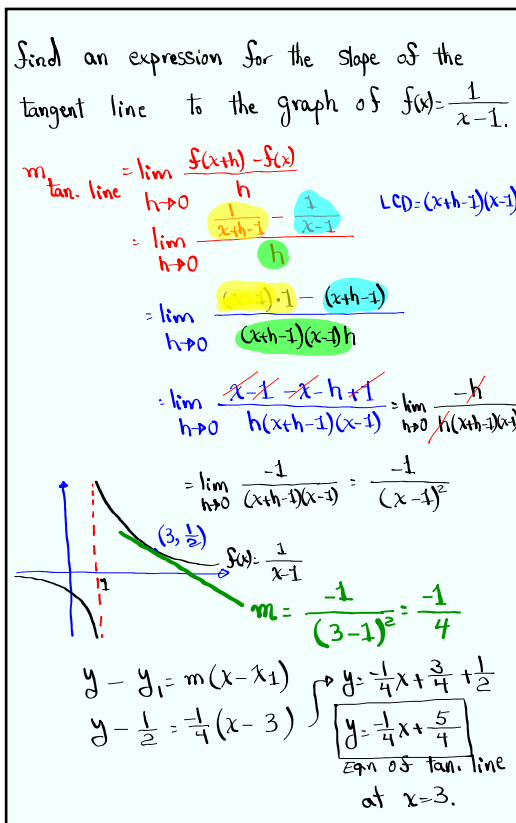 find an expression for the slope of the
tangent line to the graph of f(x)=1/(x-1).
m tan. line = lim h→0 (f(x+h)-f(x))/h
LCD=(x+h-1)(x-1)
= lim h→0 (1/(x+h-1) - 1/(x-1))/h
= lim h→0 ((x-1)·1 - (x+h-1))/((x+h-1)(x-1)h)
= lim h→0 (x-1-x-h+1)/(h(x+h-1)(x-1)) = lim h→0 -h/(h(x+h-1)(x-1)
= lim h→0 -1/((x+h-1)(x-1)) = -1/(x-1)²
(3, 1/2)
f(x)=1/(x-1)
1
m = -1/(3-1)² = -1/4
y - y₁ = m(x-x1)
y - 1/2 = -1/4(x-3)
y = -1/4x + 3/4 + 1/2
y = -1/4x + 5/4
Eqn of tan. line
at x=3.